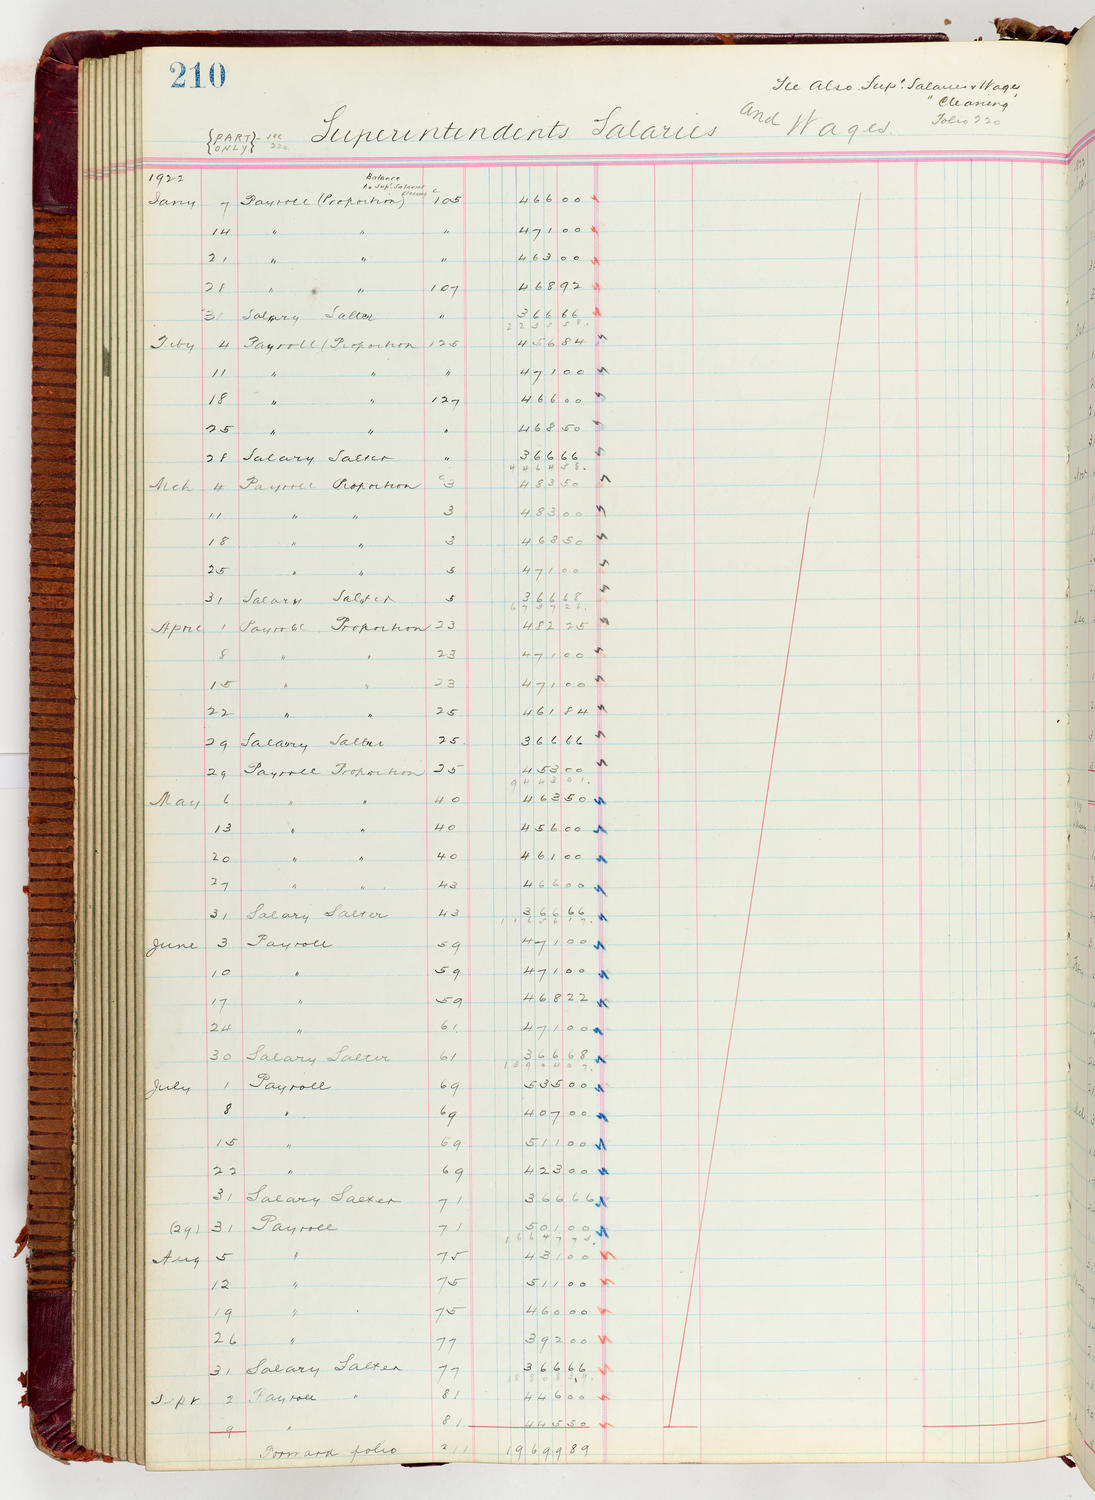 210
See Also Supt. Salaries & Wages
" Cleaning"
Folio 220
{PART ONLY} see 220 Superintendents Salaries and Wages.
1922 Balance
to Supt. Salaries
Cleaning
Jany 7 Payroll (Proportion) C 105 466 00
14 " " " 471 00
21 " " " 463 00
28 " " 107 468 92
31 Salary Salter " 366 66
2235 58.
Feby 4 Payroll (Proportion 125 456 84
11 " " " 471 00
18 " " 127 466 00
25 " " " 468 50
28 Salary Salter " 366 66
4464 58.
Mch 4 Payroll Proportion C3 483 50
11 " " 3 483 00
18 " " 3 468 50
25 " " 5 471 00
31 Salary Salter 5 366 68
6737 26.
April 1 Payroll Proportion 23 482 25
8 " " 23 471 00
15 " " 23 471 00
22 " " 25 461 84
29 Salary Salter 25. 366 66
29 Payroll Proportion 25 453 00
9443 01.
May 6 " " 40 463 50
13 " " 40 456 00
20 " " 40 461 00
27 " " 43 466 00
31 Salary Salter 43 366 66
11656 17.
June 3 Payroll 59 471 00
10 " 59 471 00
17 " 59 468 22
24 " 61. 471 00
30 Salary Salter 61 366 68
13904 07.
July 1 Payroll 69 535 00
8 " 69 407 00
15 " 69 511 00
22 " 69 423 00
31 Salary Salter 71 366 66
(29) 31 Payroll 71 501 00
16647 73.
Aug 5 " 75 431 00
12 " 75 511 00
19 " 75 460 00
26 " 77 392 00
31 Salary Salter 77 366 66
18808 39.
Sept 2 Payroll " 81 446 00
9 " 81 445 50
Forward folio 211 19699 89